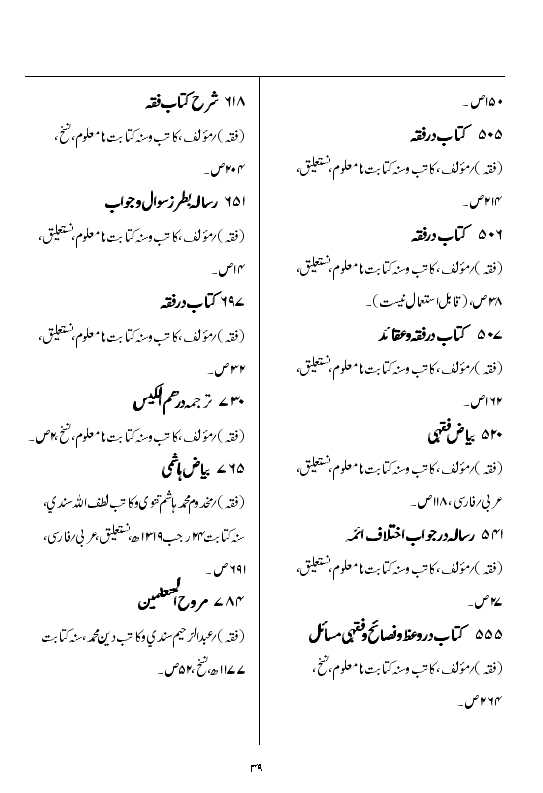 ۱۵۰ص۔
۵۰۵ کتاب درفقہ
(فقہ)/مؤلف، کاتب وسنہ کتابت نامعلوم، نستعلیق،
۲۱۴ص۔
۵۰۶ کتاب درفقہ
(فقہ)/مؤلف، کاتب وسنہ کتابت نامعلوم، نستعلیق،
۳۸ص، (قابل استعمال نیست)۔
۵۰۷ کتاب درفقہ وعقائد
(فقہ)/مؤلف، کاتب وسنہ کتابت نامعلوم، نستعلیق،
۱۶۲ص۔
۵۲۰ بیاض فقہی
(فقہ)/مؤلف، کاتب وسنہ کتابت نامعلوم، نستعلیق،
عربی/فارسی، ۱۱۸ص۔
۵۴۱ رسالہ درجواب اختلاف ائمہ
(فقہ)/مؤلف، کاتب وسنہ کتابت نامعلوم، نستعلیق،
۲۷ص۔
۵۵۵ کتاب دروعظ ونصائح وفقہی مسائل
(فقہ)/مؤلف، کاتب وسنہ کتابت نامعلوم، نسخ،
۲۶۴ص۔
۶۱۸ شرح کتاب فقہ
(فقہ)/مؤلف، کاتب وسنہ کتابت نامعلوم، نسخ،
۲۰۴ص۔
۶۵۱ رسالہ بطرز سوال وجواب
(فقہ)/مؤلف، کاتب وسنہ کتابت نامعلوم، نستعلیق،
۱۴ص۔
۶۹۷ کتاب درفقہ
(فقہ)/مؤلف، کاتب وسنہ کتابت نامعلوم، نستعلیق،
۳۲ص۔
۷۳۰ ترجمہ درھم الکیس
(فقہ)/مؤلف، کاتب وسنہ کتابت نامعلوم، نسخ، ۲ص۔
۷۶۵ بیاض ہاشمی
(فقہ)/مخدوم محمد ہاشم تتوی وکاتب لطف اللہ سندي،
سنہ کتابت ۲۴ رجب ۱۳۱۹ھ، نستعلیق، عربی/فارسی،
۶۹۱ص۔
۷۸۴ مروح المتعلمین
(فقہ)/عبدالرحیم سندي وکاتب دین محمد، سنہ کتابت
۱۱۷۷ھ، نسخ، ۵۲ص۔
۳۹